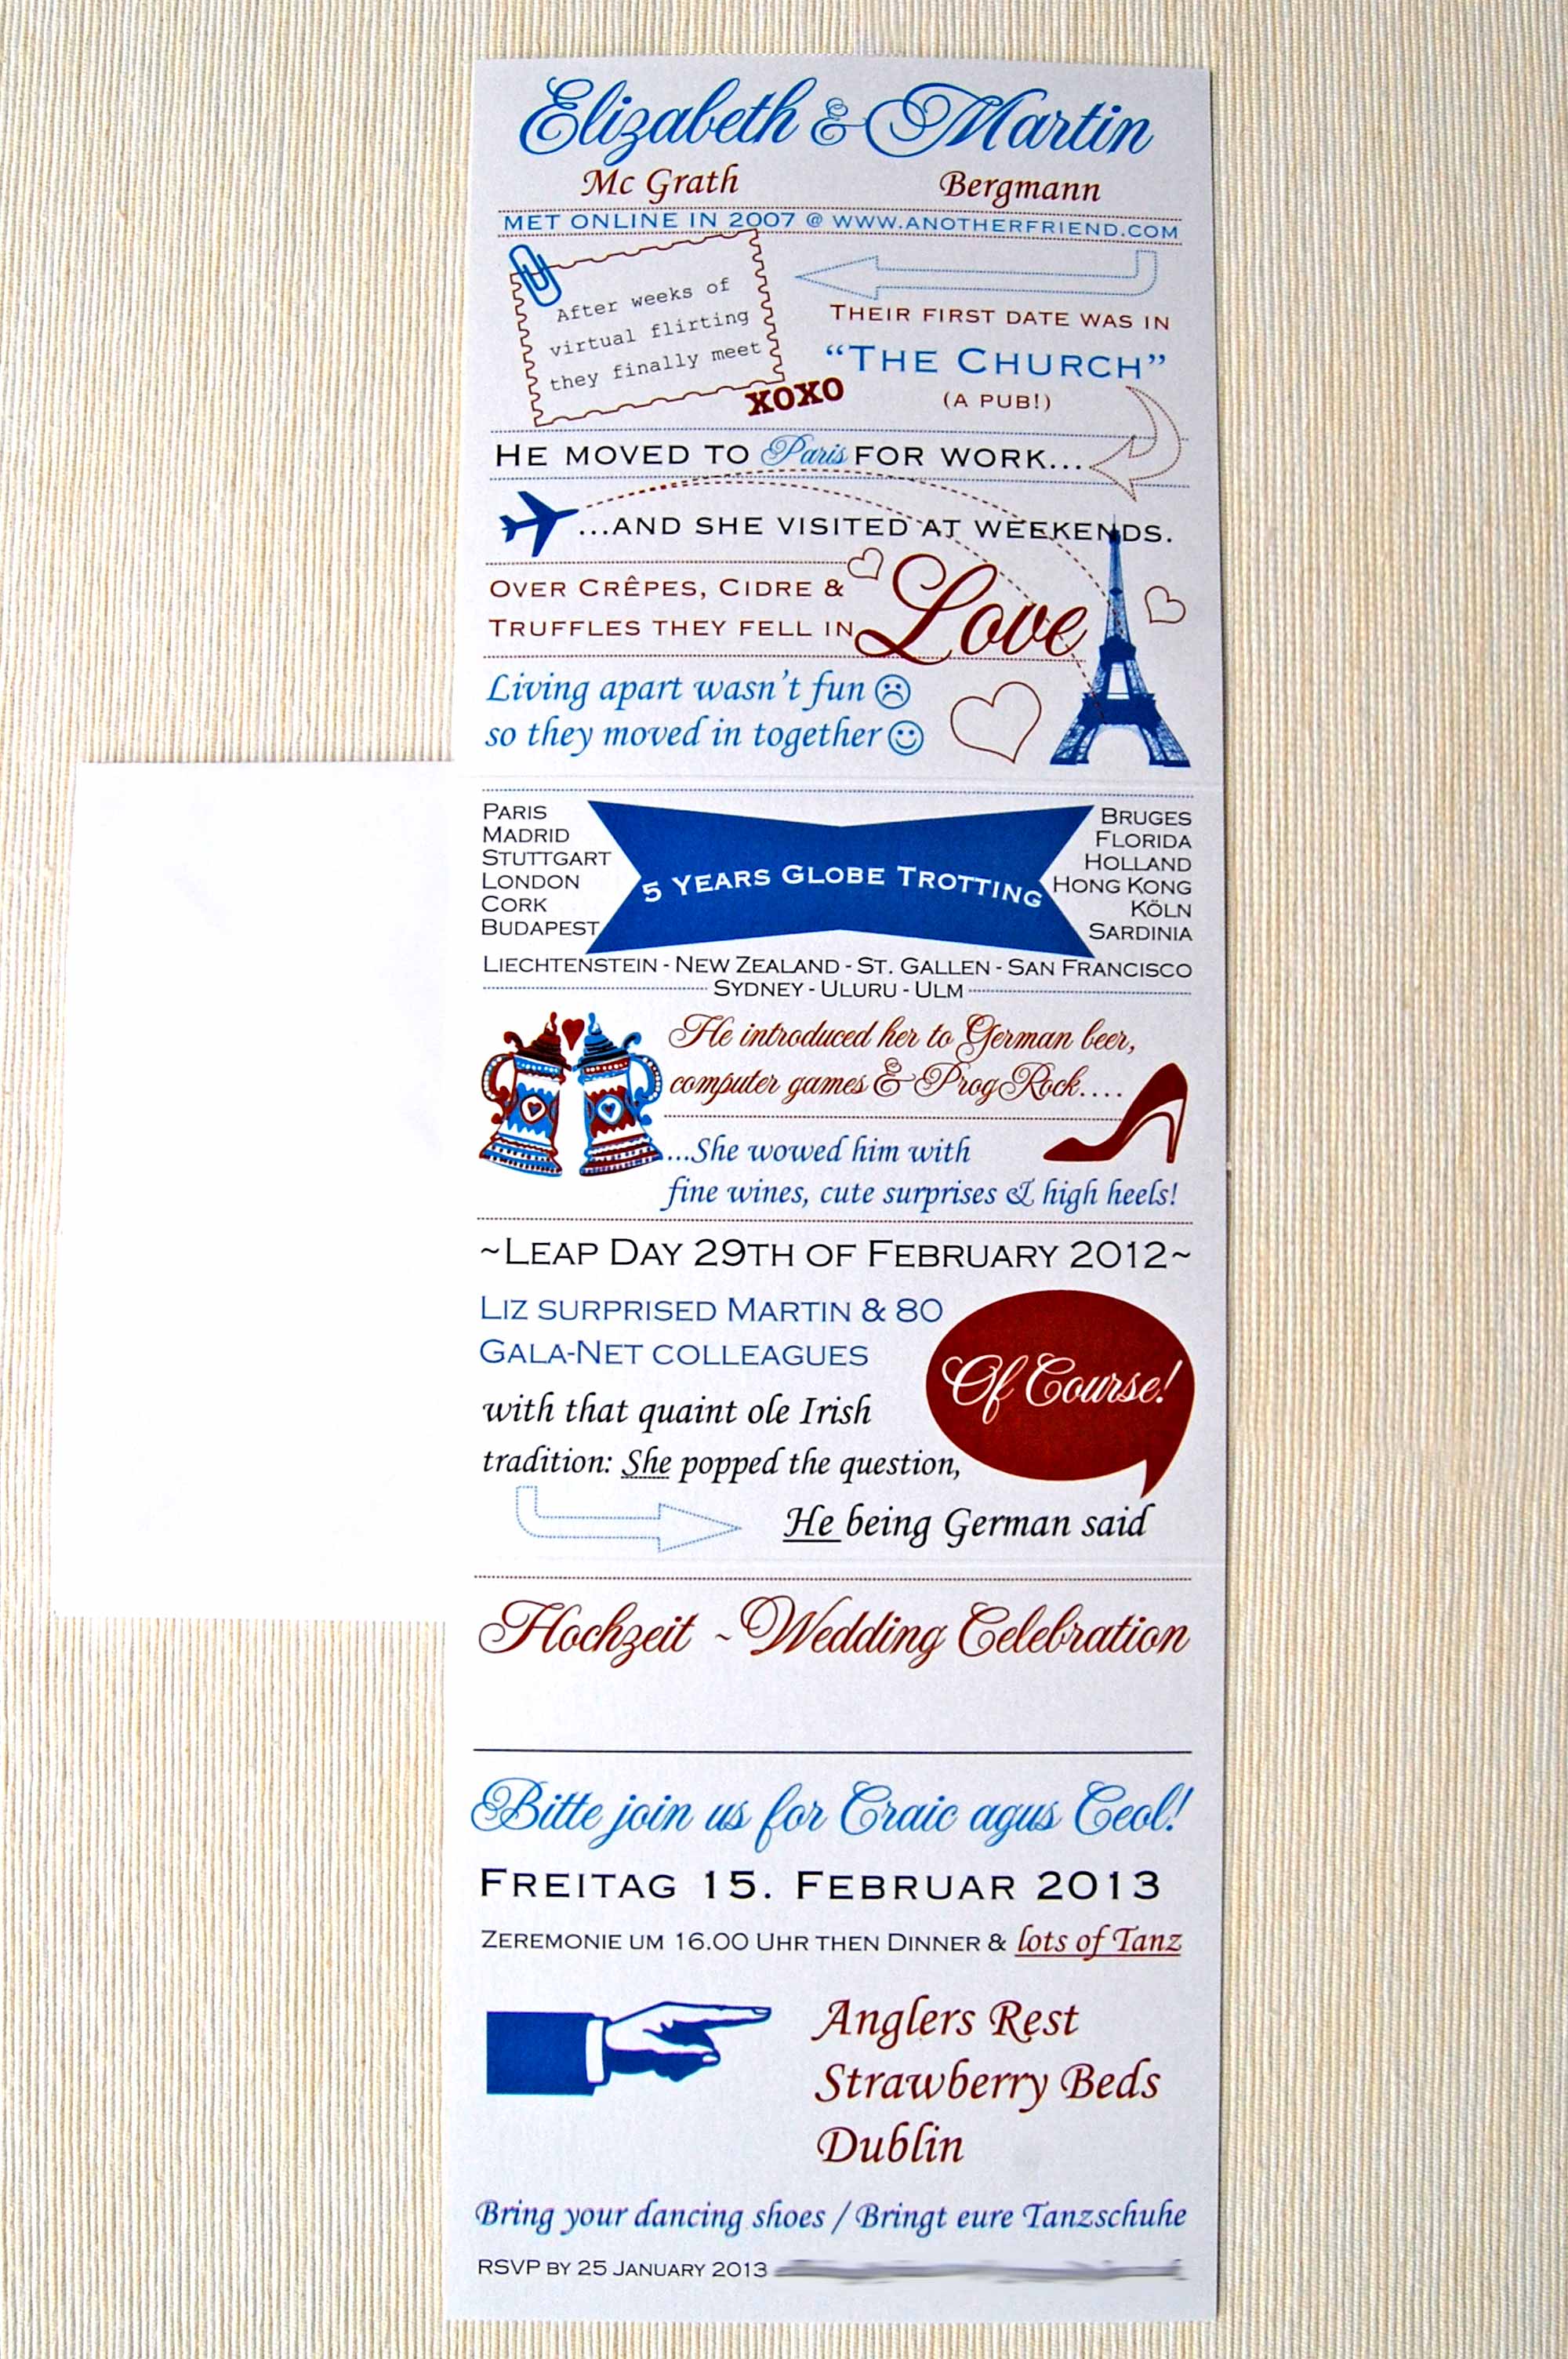 Elizabeth & Martin
Mc Grath Bergmann
MET ONLINE IN 2007 @ WWW.ANOTHERFRIEND.COM
After weeks of
virtual flirting
they finally meet
XOXO
THEIR FIRST DATE WAS IN
“THE CHURCH”
(A PUB!)
HE MOVED TO Paris FOR WORK...
...AND SHE VISITED AT WEEKENDS.
OVER CRÊPES, CIDRE &
TRUFFLES THEY FELL IN Love
Living apart wasn't fun ☹
so they moved in together ☺
PARIS
MADRID
STUTTGART
LONDON
CORK
BUDAPEST
5 YEARS GLOBE TROTTING
BRUGES
FLORIDA
HOLLAND
HONG KONG
KÖLN
SARDINIA
LIECHTENSTEIN - NEW ZEALAND - ST. GALLEN - SAN FRANCISCO
SYDNEY - ULURU - ULM
He introduced her to German beer,
computer games & Prog Rock....
...She wowed him with
fine wines, cute surprises & high heels!
~LEAP DAY 29TH OF FEBRUARY 2012~
LIZ SURPRISED MARTIN & 80
GALA-NET COLLEAGUES
with that quaint ole Irish
tradition: She popped the question,
Of Course!
He being German said
Hochzeit ~ Wedding Celebration
Bitte join us for Craic agus Ceol!
FREITAG 15. FEBRUAR 2013
ZEREMONIE UM 16.00 UHR THEN DINNER & lots of Tanz
Anglers Rest
Strawberry Beds
Dublin
Bring your dancing shoes / Bringt eure Tanzschuhe
RSVP BY 25 JANUARY 2013